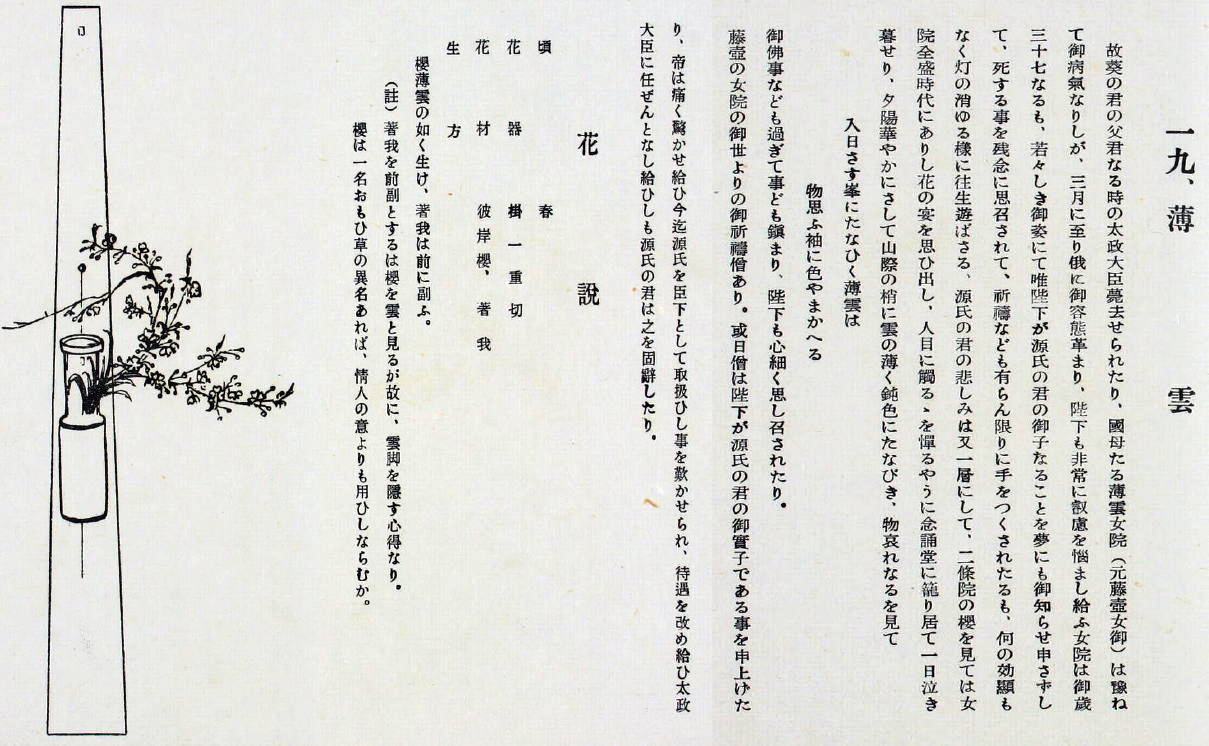 一九、薄雲
故葵の君の父君なる時の太政大臣薨去せられたり、國母たる薄雲女院（元藤壺女御）は豫ね
て御病氣なりしが、三月に至り俄に御容態革まり、陛下も非常に叡慮を惱まし給ふ女院は御歲
三十七なるも、若々しき御姿にて唯陛下が源氏の君の御子なることを夢にも御知らせ申さずし
て、死する事を残念に思召されて、祈禱なども有らん限りに手をつくされたるも、何の効顯も
なく灯の消ゆる樣に往生遊ばさる、源氏の君の悲しみは又一層にして、二條院の櫻を見ては女
院全盛時代にありし花の宴を思ひ出し、人目に觸るゝを憚るやうに念誦堂に籠り居て一日泣き
暮せり、夕陽華やかにさして山際の梢に雲の薄く鈍色にたなびき、物哀れなるを見て
入日さす峯にたなひく薄雲は
物思ふ袖に色やまかへる
御佛事なども過ぎて事ども鎭まり、陛下も心細く思し召されたり。
藤壺の女院の御世よりの御祈禱僧あり。或日僧は陛下が源氏の君の御實子である事を申上げた
り、帝は痛く驚かせ給ひ今迄源氏を臣下として取扱ひし事を歎かせられ、待遇を改め給ひ太政
大臣に任ぜんとなし給ひしも源氏の君は之を固辭したり。
花說
頃 春
花器 掛一重切
花材 彼岸櫻、著我
生方
櫻薄雲の如く生け、著我は前に副ふ。
（註）著我を前副とするは櫻を雲と見るが故に、雲脚を隱す心得なり。
櫻は一名おもひ草の異名あれば、情人の意よりも用ひしならむか。